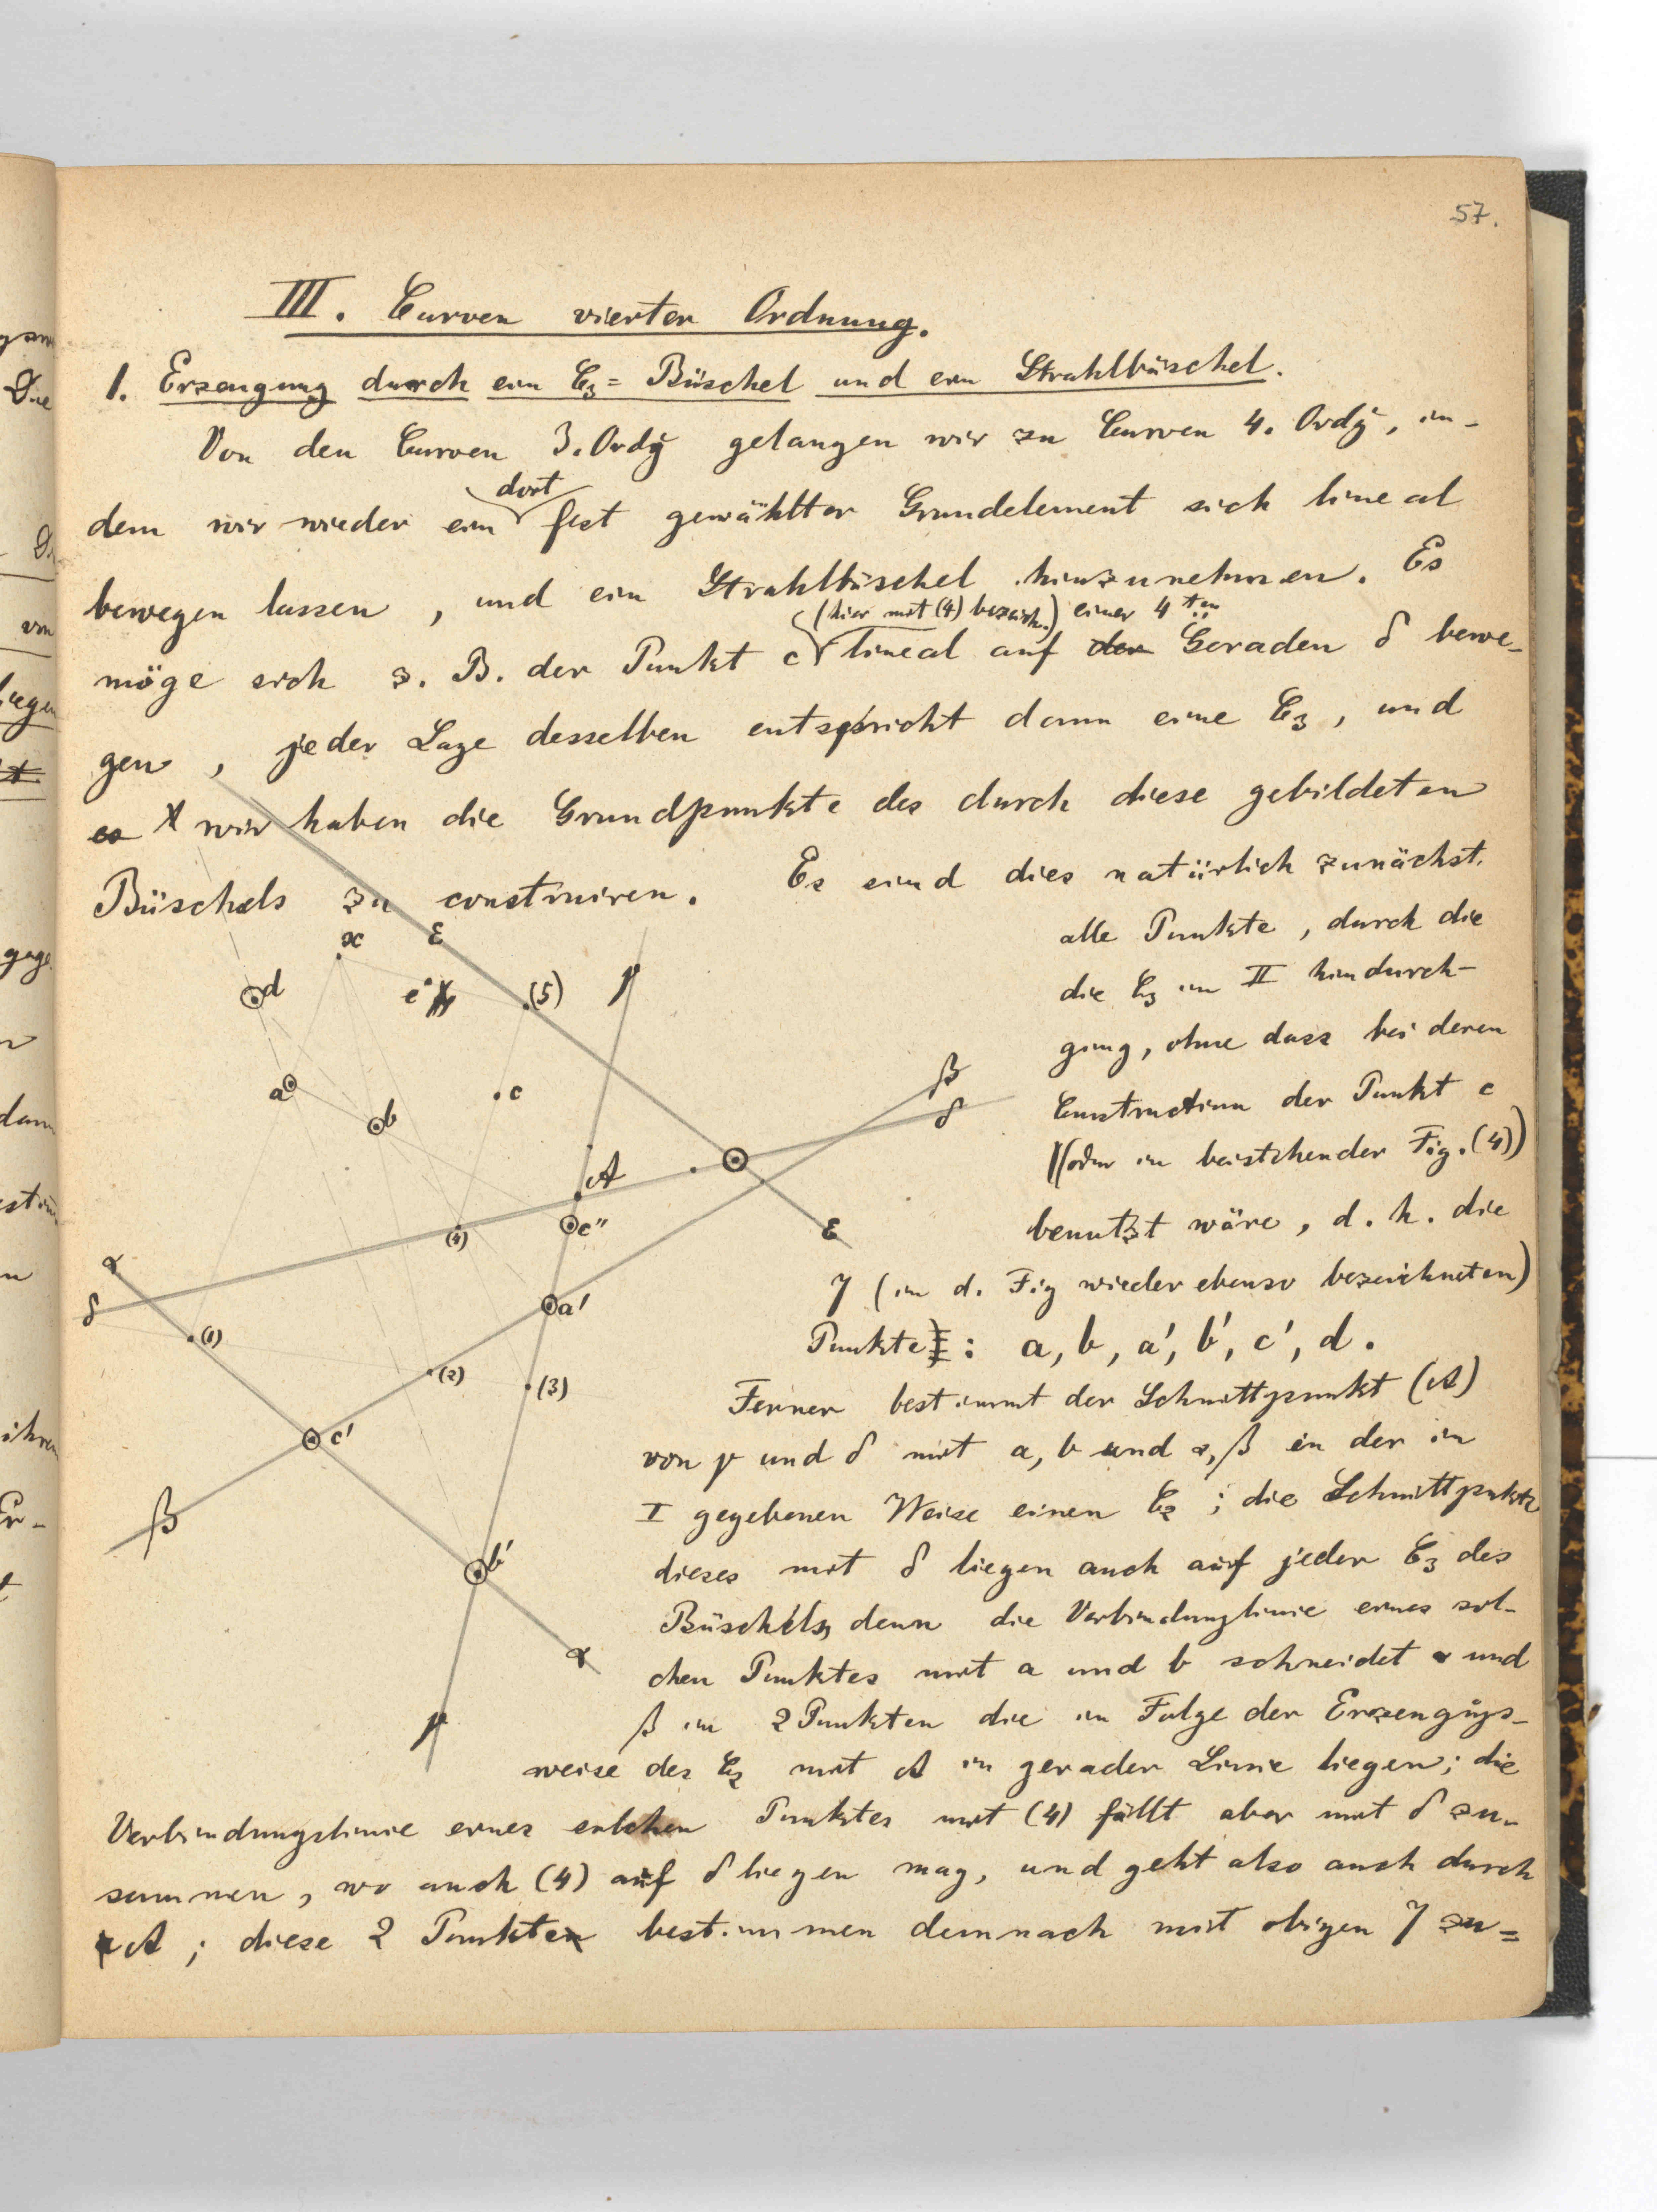 57.
III. Curven vierter Ordnung.
1. Erzeugung durch ein C₃= Büschel und ein Strahlbüschel.
Von den Curven 3. Ordg gelangen wir zu Curven 4. Ordg, in-
dem wir wieder ein dort fest gewählter Grundelement sich lineal
bewegen lassen, und ein Strahlbüschel hinzunehmen. Es
(hier mit (4) bezeichn.) einer 4ten
möge sich z. B. der Punkt c lineal auf der Geraden δ bewe-
gen, jeder Lage desselben entspricht dann eine C₃, und
es wir haben die Grundpunkte des durch diese gebildeten
Büschels zu construiren. Es sind dies natürlich zunächst
alle Punkte, durch die
die C₃ in II hindurch-
ging, ohne dass bei deren
Construction der Punkt c
(oder in beistehender Fig. (4))
benutzt wäre, d. h. die
7 (in d. Fig wieder ebenso bezeichneten)
Punkte: a, b, a', b', c', d.
Ferner bestimmt der Schnittpunkt (A)
von γ und δ mit a, b und α, β in der in
I gegebenen Weise einen C₂; die Schnittpunkte
dieses mit δ liegen auch auf jeder C₃ des
Büschels, denn die Verbindunglinie eines sol-
chen Punktes mit a und b schneidet α und
β in 2 Punkten die in Folge der Erzeugungs-
weise des C₂ mit A in gerader Linie liegen; die
Verbindungslinie eines solchen Punktes mit (4) fällt aber mit δ zu-
sammen, wo auch (4) auf δ liegen mag, und geht also auch durch
A; diese 2 Punkte bestimmen demnach mit obigen 7 zu=
x
ε
d
e
(5)
γ
a
b
c
β
δ
A
c''
(4)
ε
α
δ
a'
(1)
(2)
(3)
c'
β
b'
α
γ